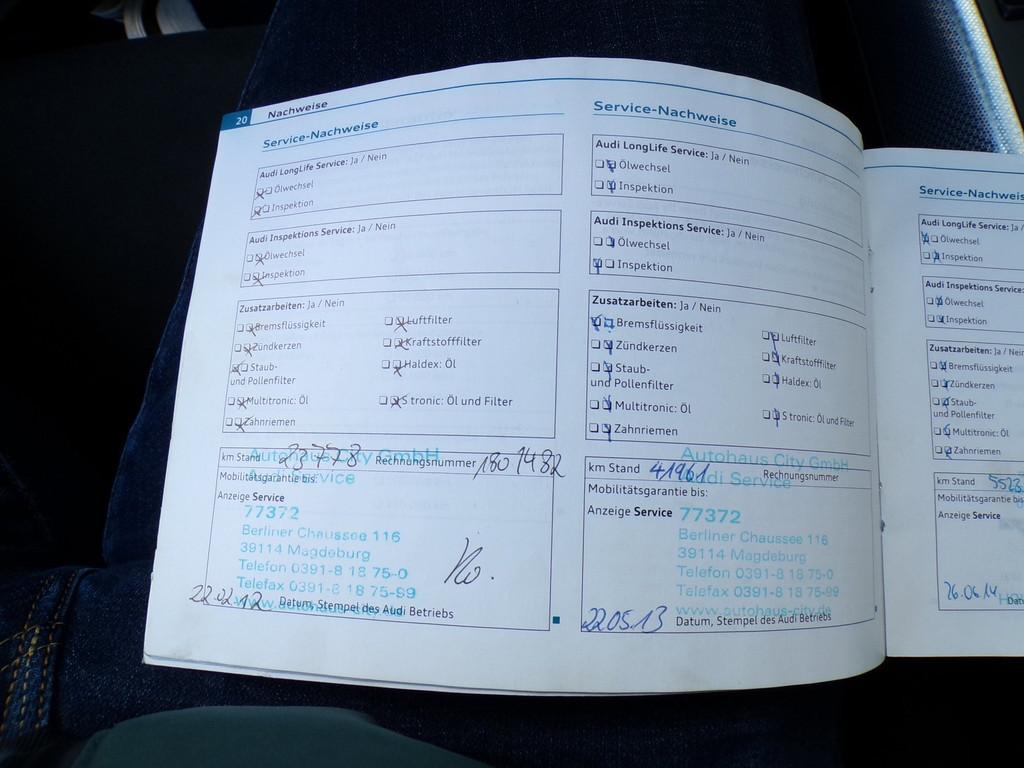 20 Nachweise
Service-Nachweise
Audi LongLife Service: Ja / Nein
Ölwechsel
Inspektion
Audi Inspektions Service: Ja / Nein
Ölwechsel
Inspektion
Zusatzarbeiten: Ja / Nein
Bremsflüssigkeit
Luftfilter
Zündkerzen
Kraftstofffilter
Staub-
und Pollenfilter
Haldex: Öl
Multitronic: Öl
S tronic: Öl und Filter
Zahnriemen
Autohaus City GmbH
km Stand 23778 Rechnungsnummer 1801482
Audi Service
Mobilitätsgarantie bis:
Anzeige Service
77372
Berliner Chaussee 116
39114 Magdeburg
Telefon 0391-8 18 75-0
Telefax 0391-8 18 75-99
22.02.12 Datum, Stempel des Audi Betriebs
Service-Nachweise
Audi LongLife Service: Ja / Nein
Ölwechsel
Inspektion
Audi Inspektions Service: Ja / Nein
Ölwechsel
Inspektion
Zusatzarbeiten: Ja / Nein
Bremsflüssigkeit
Luftfilter
Zündkerzen
Kraftstofffilter
Staub-
und Pollenfilter
Haldex: Öl
Multitronic: Öl
S tronic: Öl und Filter
Zahnriemen
Autohaus City GmbH
km Stand 41961 Rechnungsnummer
Audi Service
Mobilitätsgarantie bis:
Anzeige Service 77372
Berliner Chaussee 116
39114 Magdeburg
Telefon 0391-8 18 75-0
Telefax 0391-8 18 75-99
www.autohaus-city.de
22.05.13 Datum, Stempel des Audi Betriebs
Service-Nachweis
Audi LongLife Service: Ja /
Ölwechsel
Inspektion
Audi Inspektions Service:
Ölwechsel
Inspektion
Zusatzarbeiten: Ja / Nein
Bremsflüssigkeit
Zündkerzen
Staub-
und Pollenfilter
Multitronic: Öl
Zahnriemen
km Stand 5523
Mobilitätsgarantie bis
Anzeige Service
26.06.14